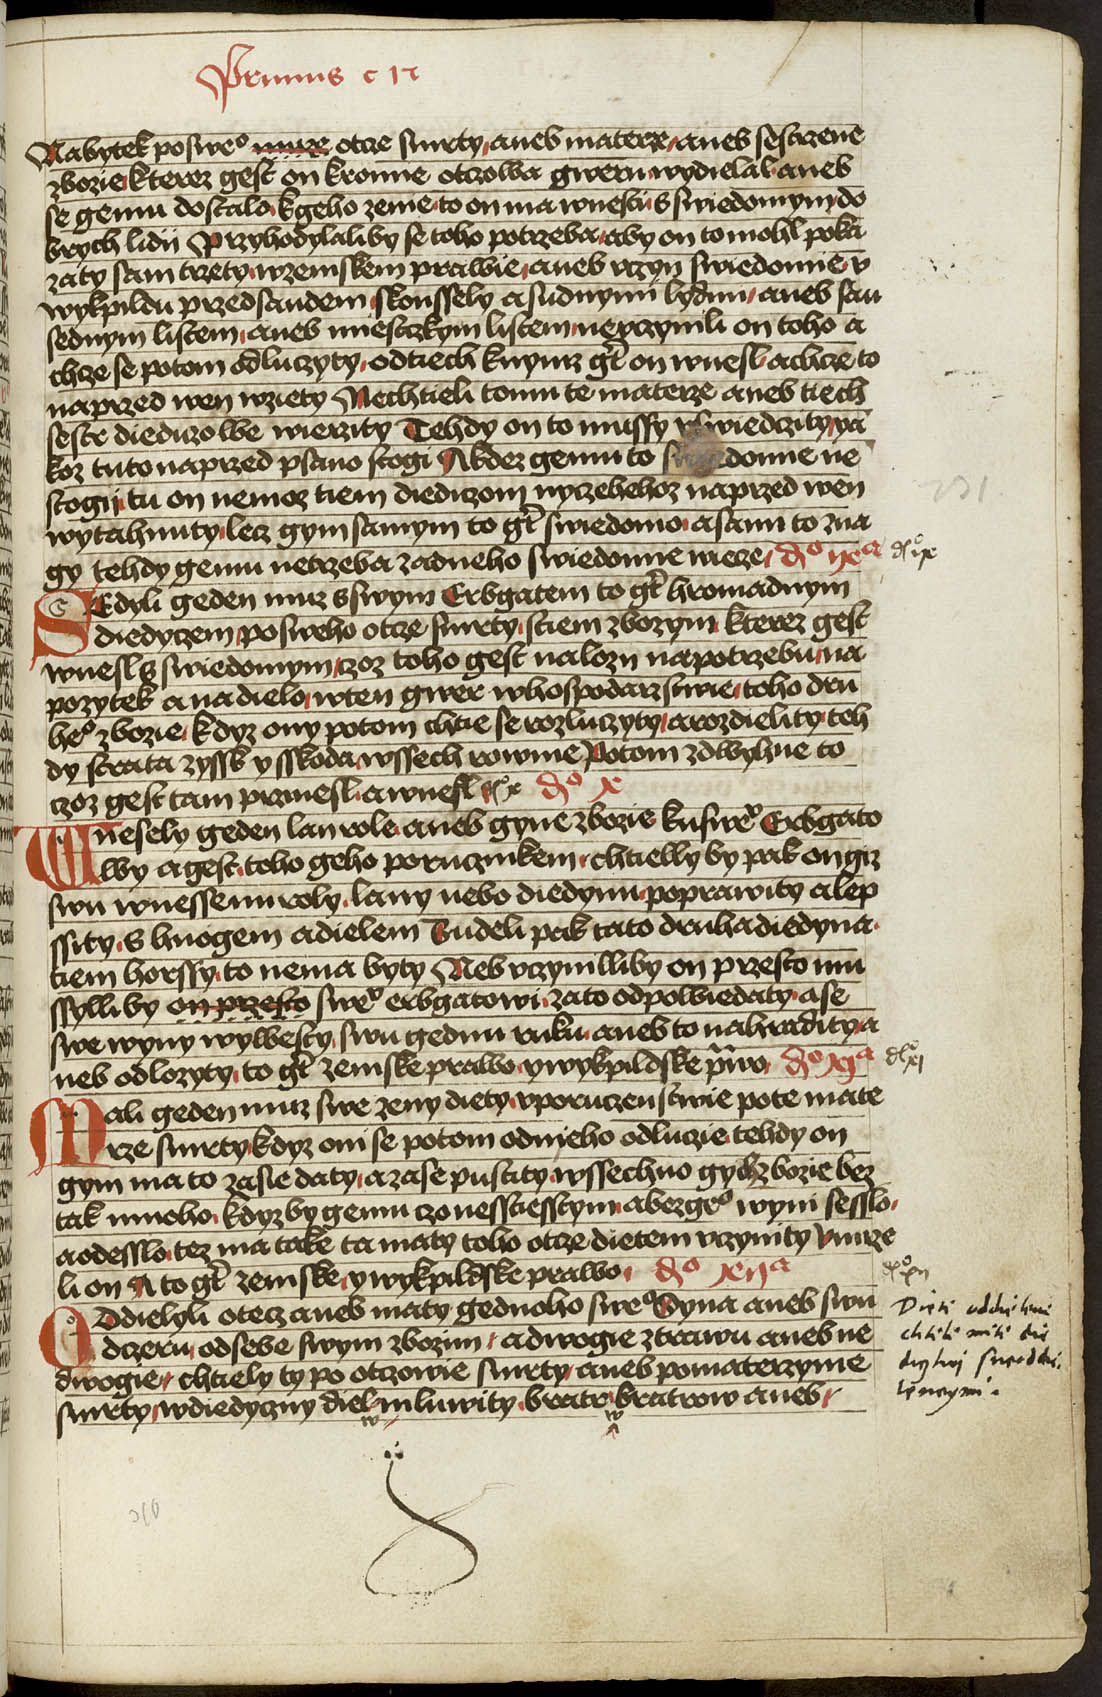 Primus c 12
Nabytek po swe͛ mure otcze smrty, aneb materze, aneb sestrzene
zbozie kterez gest on kromie otczowa gmeni wydielal aneb
se gemu dostalo, k geho zeme, to on ma wnesti s swiedomym do
brych lidij Przyhodylaliby se toho potrzeba, aby on to mohl poka
zaty sam trzety, w zemskem prawie, aneb vczyn swiedomie v
wykpildu przed saudem, skonssely a sudnymi lydmi, aneb sau
sednym listem, aneb miestczkym listem, nevczynili on toho a
chcze se potom odluczyty, od tiech k nymz gt on wnesl, a chcze to
naprzed wen wziety Nechtieli tomu te materze aneb tiech
sestr diediczowe wierzity Tehdy on to mussy vswiedczity, ya
koz tuto naprzed psano stogi A kdez gemu to domie ne
stogij, tu on nemoz tiem diediczom nyczehehoz naprzed wen
wytahnuty, lecz gym samym to gt swiedomo, a sami to zna
gy tehdy gemu netrzeba zadneho swiedomie wiecze, do ixa
SEdyli geden muz s swym Erbgatem to gt hromadnym
diedyczem, po sweho otcze smrty, stiem zbozym, kterez gest
wnesl s swiedomym, czoz toho gest nalozy na potrzebu, na
pozytek a na dielo, w ten gwer w hospodarzstwie, toho dru
heo zbozie, kdyz ony potom chtie se rozluczyty, a rozdielity, teh
dy strata zyssk y sskoda, wssech rownie Potom zdwyhne to
czoz gest tam przinesl a wnesl do x
Wnesely geden lan role aneb gyne zbozie k sweo Erbgato
wy a gest toho geho poruczmikem, chtielly by pak on giz
swu wnessenu roly, lany nebo diedynu, poprawity a lep
ssity, s hnogem a dielem Budeli pak tato druha diedyna
tiem horssy, to nema byty Neb vczynilliby on przesto mu
ssylliby on przesto sweo erbgatowi, za to odpowiedaty, a se
swe wyny wywesty, swu gednu ruku, aneb to nahradity, a
neb odlozyty, to gt zemske prawo, y wykpildske pwo, do xja
Mali geden muz swe zeny diety, v poruczenstwie po te mate
rze smrty, kdyz oni se potom od nieho odluczie, tehdy on
gym ma to zasie daty, a zase pustity, wssechno gych zbozie bez
tak mnoho, kdyz by gemu czo nesstiesstym, a bez geo wyni sesslo,
a odesslo, tez ma take ta maty toho otcze dietem vczynity Vmrze
li on A to gt zemske, y wykpildske prawo, do xija
ODdielyli otecz aneb maty gednoho sweo Syna aneb swu
dczeru, od sebe swym zbozim, a dwogie ztrawu aneb ne
dwogie, chtiely ty po otczowie smrty, aneb po materzynie
smrty, w diedyczny diel mluwity bratr bratrow aneb